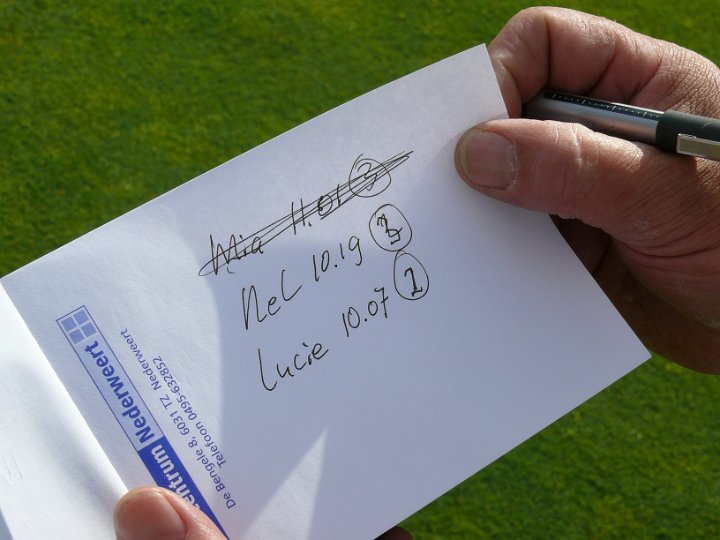 Mia 11.01 3
Nel 10.19
Lucie 10.07 1
centrum Nederweert
De Bengele 8, 6031 TZ Nederweert
Telefoon 0495-632852